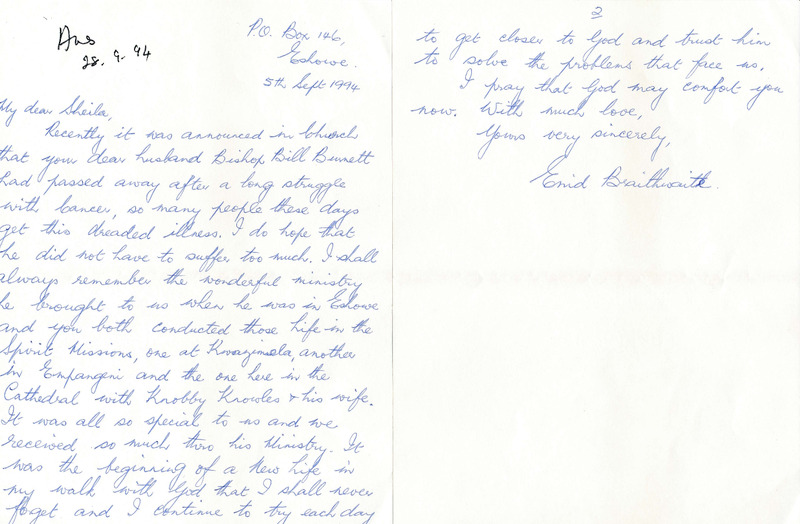 Ans
28. 9. 94
P.O. Box 146,
Eshowe.
5th Sept 1994
My dear Sheila,
Recently it was announced in Church
that your dear husband Bishop Bill Burnett
had passed away after a long struggle
with Cancer, so many people these days
get this dreaded illness. I do hope that
he did not have to suffer too much. I shall
always remember the wonderful ministry
he brought to us when he was in Eshowe
and you both conducted those Life in the
Spirit Missions, one at Kwazimela, another
in Empangeni and the one here in the
Cathedral with Knobby Knowles & his wife.
It was all so special to us and we
received so much thro his Ministry. It
was the beginning of a New Life in
my walk with God that I shall never
forget and I continue to try each day
2
to get closer to God and trust him
to solve the problems that face us.
I pray that God may comfort you
now. With much love,
Yours very sincerely,
Enid Braithwaite.